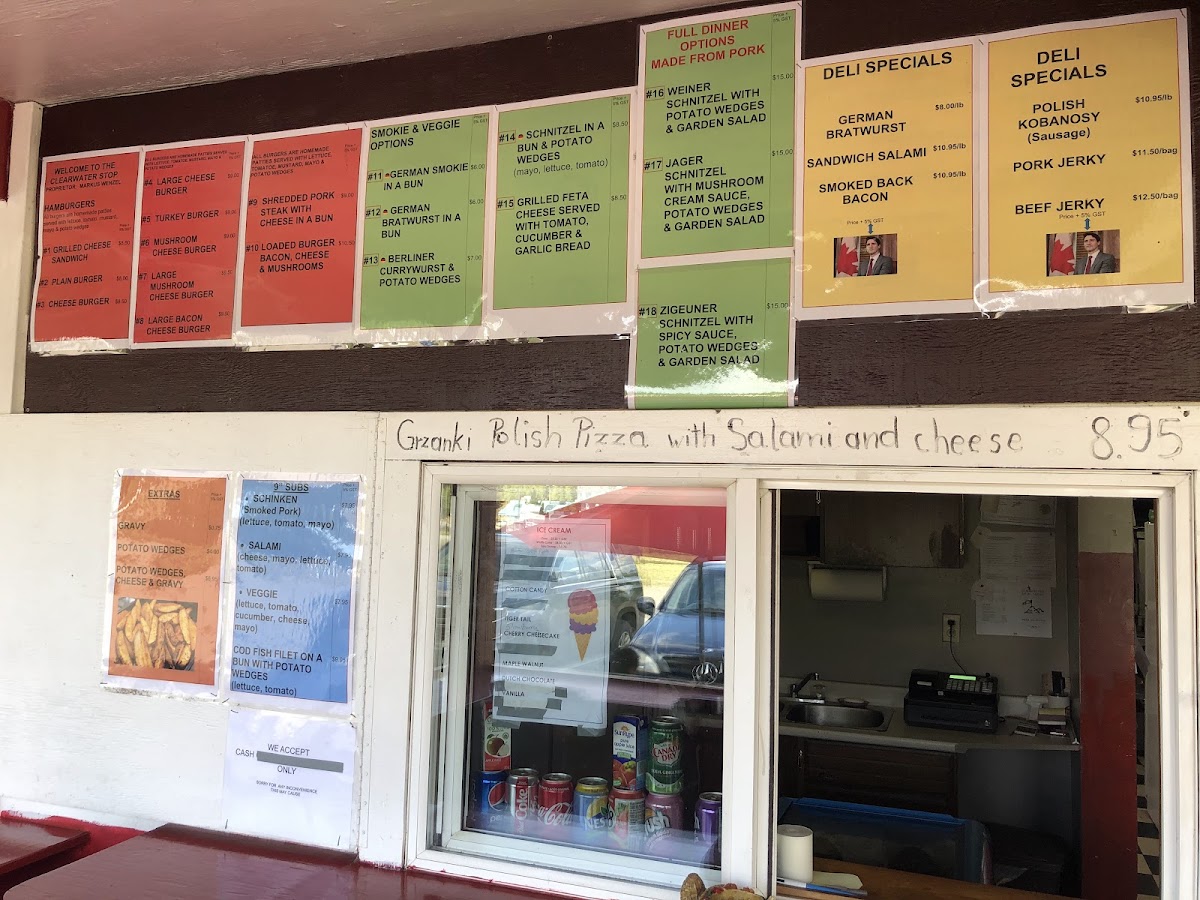 WELCOME TO THE
CLEARWATER STOP
PROPRIETOR: MARKUS WENZEL
HAMBURGERS
All burgers are homemade patties
served with lettuce, tomato, mustard,
mayo & potato wedges
#1 GRILLED CHEESE
SANDWICH
#2 PLAIN BURGER
#3 CHEESE BURGER
ALL BURGERS ARE HOMEMADE
PATTIES SERVED WITH LETTUCE, TOMATOE, MUSTARD, MAYO &
POTATO WEDGES
#4 LARGE CHEESE
BURGER
#5 TURKEY BURGER
#6 MUSHROOM
CHEESE BURGER
#7 LARGE
MUSHROOM
CHEESE BURGER
#8 LARGE BACON
CHEESE BURGER
ALL BURGERS ARE HOMEMADE
PATTIES SERVED WITH LETTUCE,
TOMATOE, MUSTARD, MAYO &
POTATO WEDGES
#9 SHREDDED PORK
STEAK WITH
CHEESE IN A BUN
#10 LOADED BURGER
BACON, CHEESE
& MUSHROOMS
SMOKIE & VEGGIE
OPTIONS
#11 GERMAN SMOKIE
IN A BUN
$6.00
#12 GERMAN
BRATWURST IN A
BUN
$6.00
#13 BERLINER
CURRYWURST &
POTATO WEDGES
$7.00
#14 SCHNITZEL IN A
BUN & POTATO
WEDGES
(mayo, lettuce, tomato)
$9.50
#15 GRILLED FETA
CHEESE SERVED
WITH TOMATO,
CUCUMBER &
GARLIC BREAD
$8.50
FULL DINNER
OPTIONS
MADE FROM PORK
Price +
5% GST
#16 WEINER
SCHNITZEL WITH
POTATO WEDGES
& GARDEN SALAD
$15.00
#17 JAGER
SCHNITZEL
WITH MUSHROOM
CREAM SAUCE,
POTATO WEDGES
& GARDEN SALAD
$15.00
#18 ZIGEUNER
SCHNITZEL WITH
SPICY SAUCE,
POTATO WEDGES
& GARDEN SALAD
$15.00
DELI SPECIALS
GERMAN
BRATWURST
$8.00/lb
SANDWICH SALAMI
$10.95/lb
SMOKED BACK
BACON
$10.95/lb
Price + 5% GST
DELI
SPECIALS
POLISH
KOBANOSY
(Sausage)
$10.95/lb
PORK JERKY
$11.50/bag
BEEF JERKY
$12.50/bag
Price + 5% GST
Grzanki Polish Pizza with Salami and cheese 8.95
EXTRAS
GRAVY
POTATO WEDGES
POTATO WEDGES,
CHEESE & GRAVY
9" SUBS
• SCHINKEN
(Smoked Pork)
(lettuce, tomato, mayo)
• SALAMI
(cheese, mayo, lettuce,
tomato)
• VEGGIE
(lettuce, tomato,
cucumber, cheese,
mayo)
COD FISH FILET ON A
BUN WITH POTATO
WEDGES
(lettuce, tomato)
WE ACCEPT
CASH
ONLY
SORRY FOR ANY INCONVENIENCE
THIS MAY CAUSE
ICE CREAM
COTTON CANDY
TIGER TAIL
CHERRY CHEESECAKE
MAPLE WALNUT
DUTCH CHOCOLATE
VANILLA
SunRype
CANADA
DRY
Coke
Coca-Cola